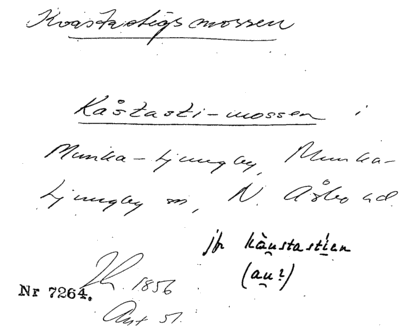 Kvastastigsmossen
Kåstasti-mossen i
Munka-Ljungby, Munka-
Ljungby sn, N. Åsbo hd.
jfr kåustastien
(au!)
1856
Nr 7264.
51.